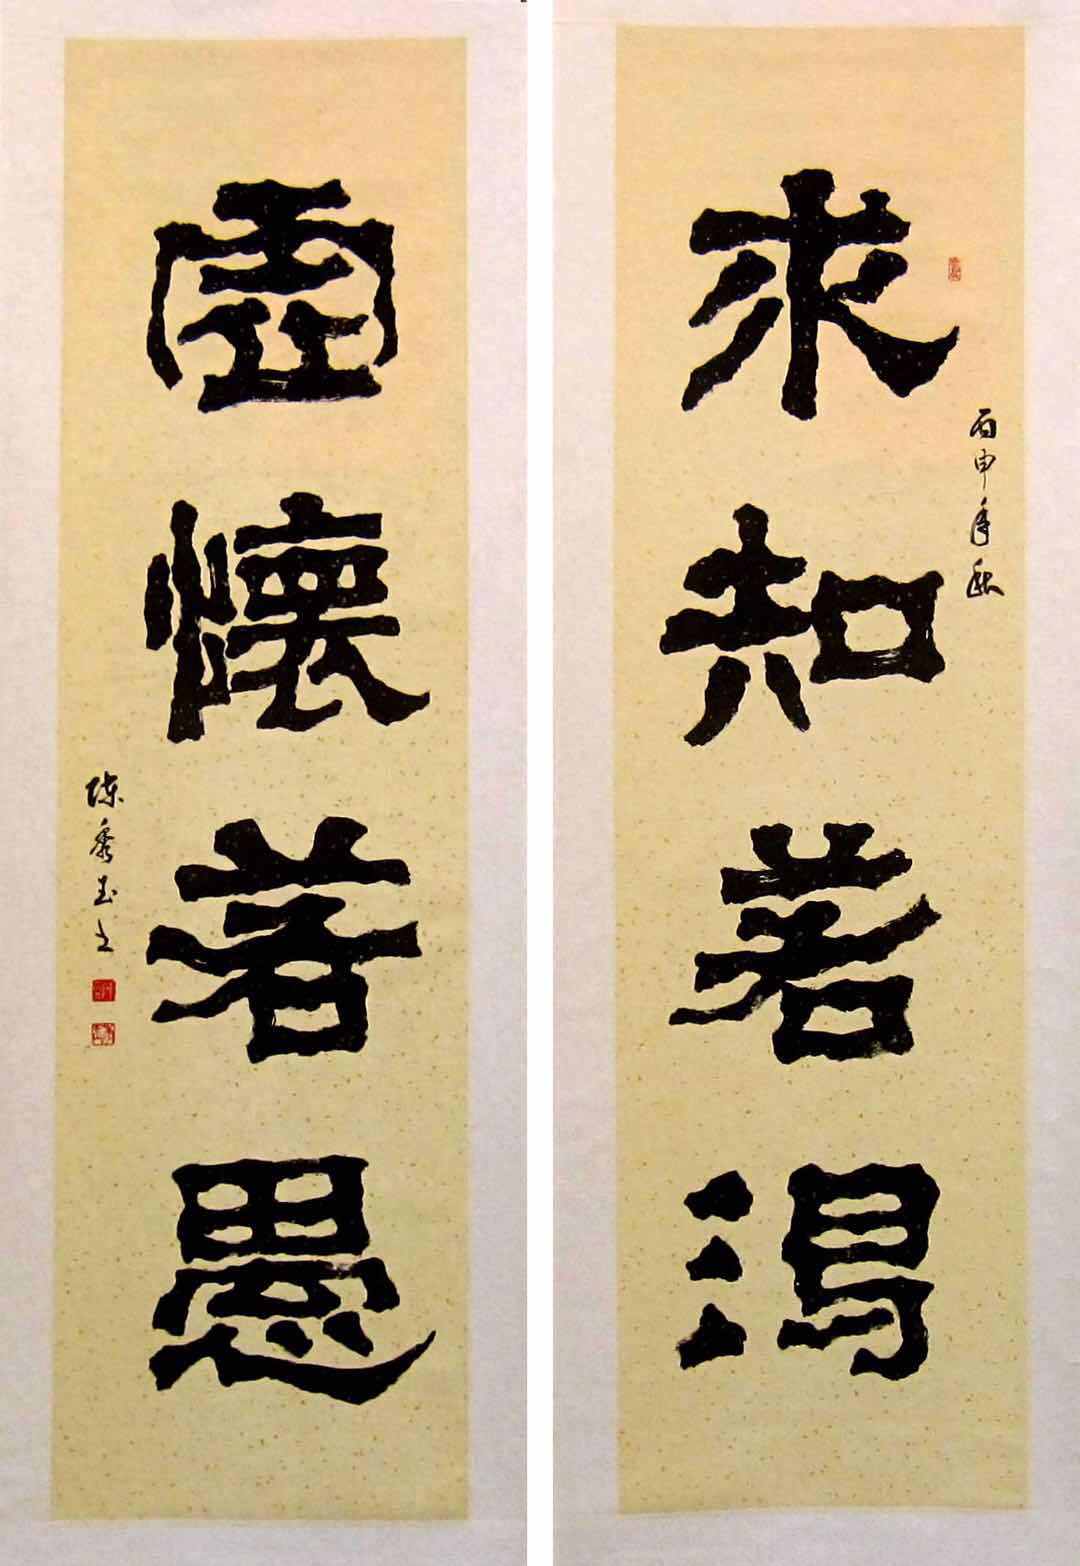 求知若渴
丙申年秋
虛懷若愚
陳秀玉书